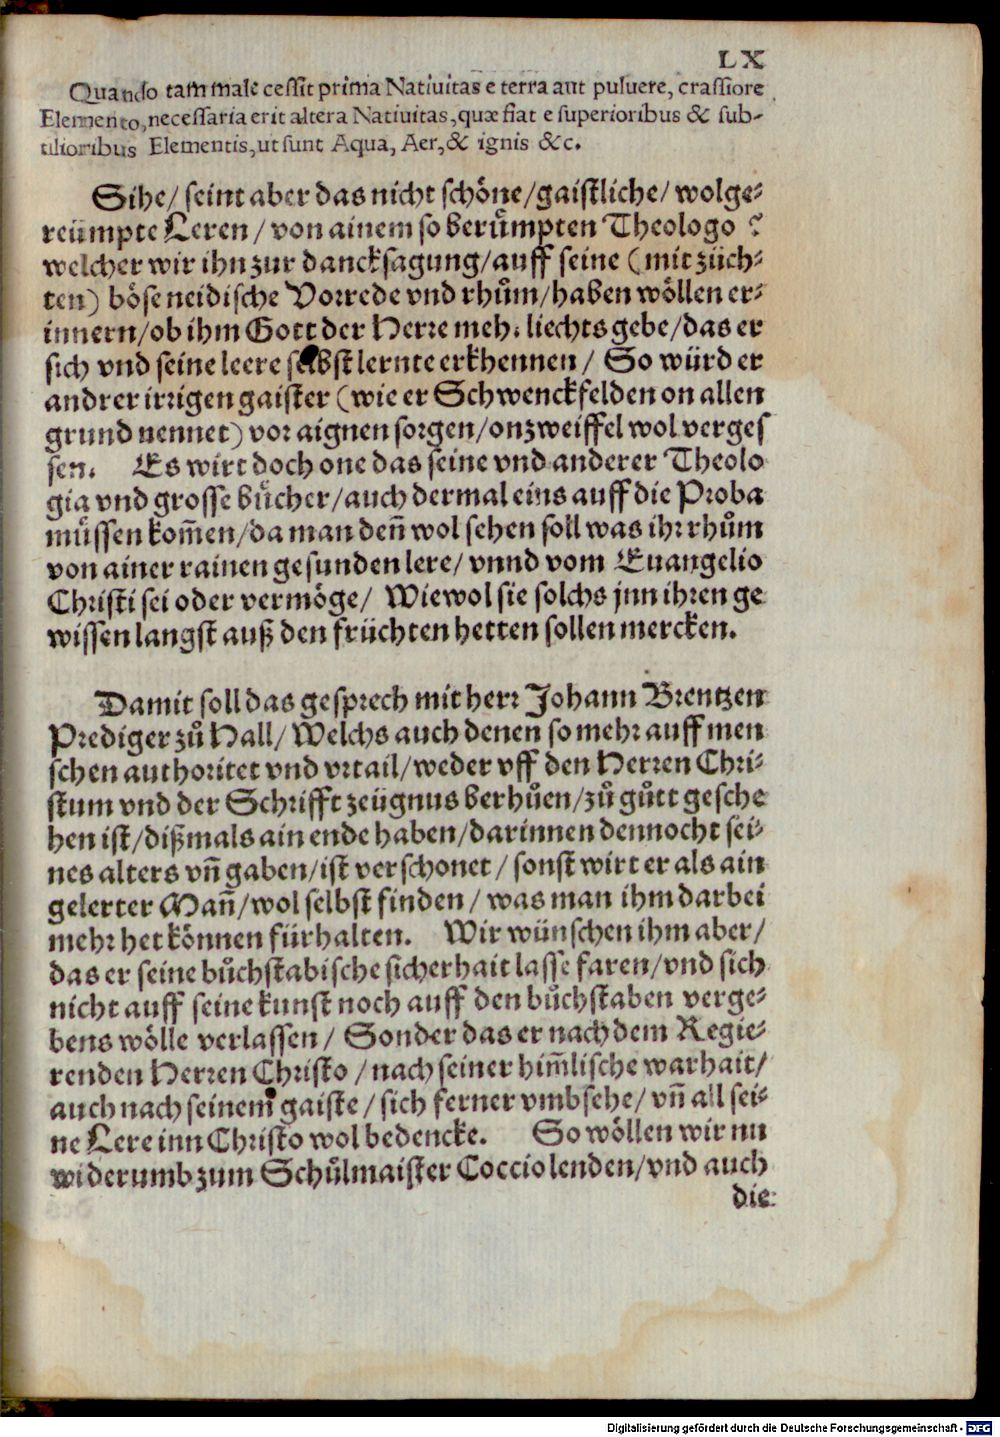 LX
Quando tam male cessit prima Natiuitas e terra aut puluere, crassiore
Elemento, necessaria erit altera Natiuitas, quæ fiat e superioribus & sub-
tilioribus Elementis, ut sunt Aqua, Aer, & ignis &c.
Sihe/ seint aber das nicht schöne/ gaistliche/ wolge-
reümpte Leren/ von ainem so berůmpten Theologo?
welcher wir ihn zur dancksagung/ auff seine (mit züch-
ten) böse neidische Vorrede vnd rhům/ haben wöllen er-
innern/ ob ihm Gott der Herre meh: liechts gebe/ das er
sich vnd seine leere selbst lernte erkhennen/ So würd er
andrer irrigen gaister (wie er Schwenckfelden on allen
grund nennet) vor aignen sorgen/ onzweiffel wol verges
sen. Es wirt doch one das seine vnd anderer Theolo
gia vnd grosse bůcher/ auch dermal eins auff die Proba
můssen kom̃en/ da man den̄ wol sehen soll was ihr rhům
von ainer rainen gesunden lere/ vnnd vom Euangelio
Christi sei oder vermöge/ Wiewol sie solchs jnn ihren ge
wissen langst auß den früchten hetten sollen mercken.
Damit soll das gesprech mit herr Johann Brentzen
Prediger zů Hall/ Welchs auch denen so mehr auff men
schen authoritet vnd vrtail/ weder vff den Herren Chri-
stum vnd der Schrifft zeügnus berhůen/ zů gůtt gesche
hen ist/ dißmals ain ende haben/ darinnen dennocht sei-
nes alters vn̄ gaben/ ist verschonet/ sonst wirt er als ain
gelerter Man̄/ wol selbst finden/ was man ihm darbei
mehr het können fürhalten. Wir wünschen ihm aber/
das er seine bůchstabische sicherhait lasse faren/ vnd sich
nicht auff seine kunst noch auff den bůchstaben verge-
bens wölle verlassen/ Sonder das er nach dem Regie-
renden Herren Christo/ nach seiner him̃lische warhait/
auch nach seinem gaiste/ sich ferner vmbsehe/ vn̄ all sei-
ne Lere inn Christo wol bedencke. So wöllen wir nu
widerumb zum Schůlmaister Coccio lenden/ vnd auch
die
Digitalisierung gefördert durch die Deutsche Forschungsgemeinschaft - DFG